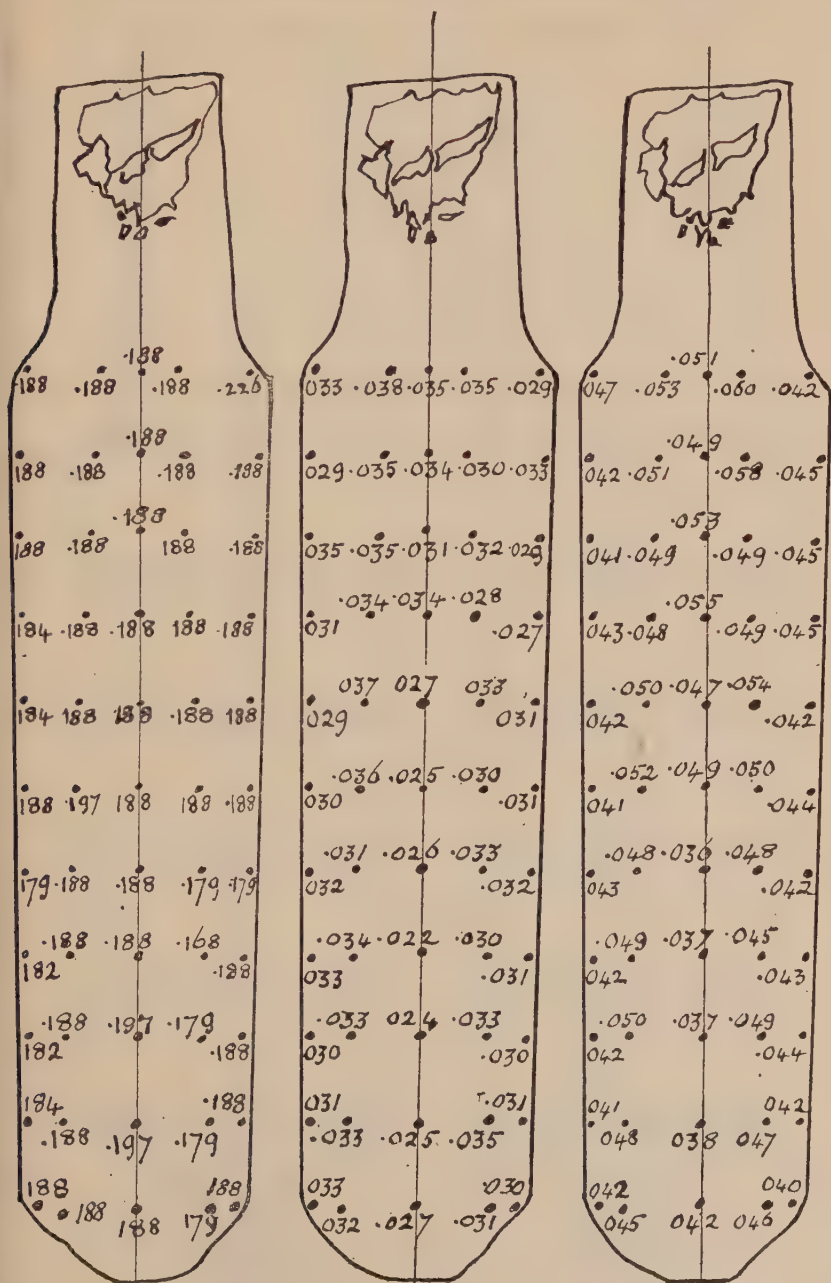 .188
188 .188 .188 .226
.188
188 .188 .188 .188
.188
188 .188 188 .188
184 .188 .188 188 .188
184 188 188 .188 188
188 .197 188 188 .188
179 .188 .188 .179 .179
.188 .188 .168
182 .188
.188 .197 .179
182 .188
184 .188
.188 .197 .179
188 188
188 188 179
033 .038 .035 .035 .029
029 .035 .034 .030 .033
035 .035 .031 .032 .029
.034 .034 .028
031 .027
037 027 033
029 031
.036 .025 .030
030 .031
.031 .026 .033
032 .032
.034 .022 .030
033 .031
.033 024 .033
030 .030
031 .031
.033 .025 .035
033 .030
032 .027 .031
.051
047 .053 .060 .042
.049
042 .051 .058 .045
.053
041 .049 .049 .045
.055
043 .048 .049 .045
.050 .047 .054
042 .042
.052 .049 .050
041 .044
.048 .036 .048
043 .042
.049 .037 .045
042 .043
.050 .037 .049
042 .044
041 042
.048 038 047
042 040
045 042 046